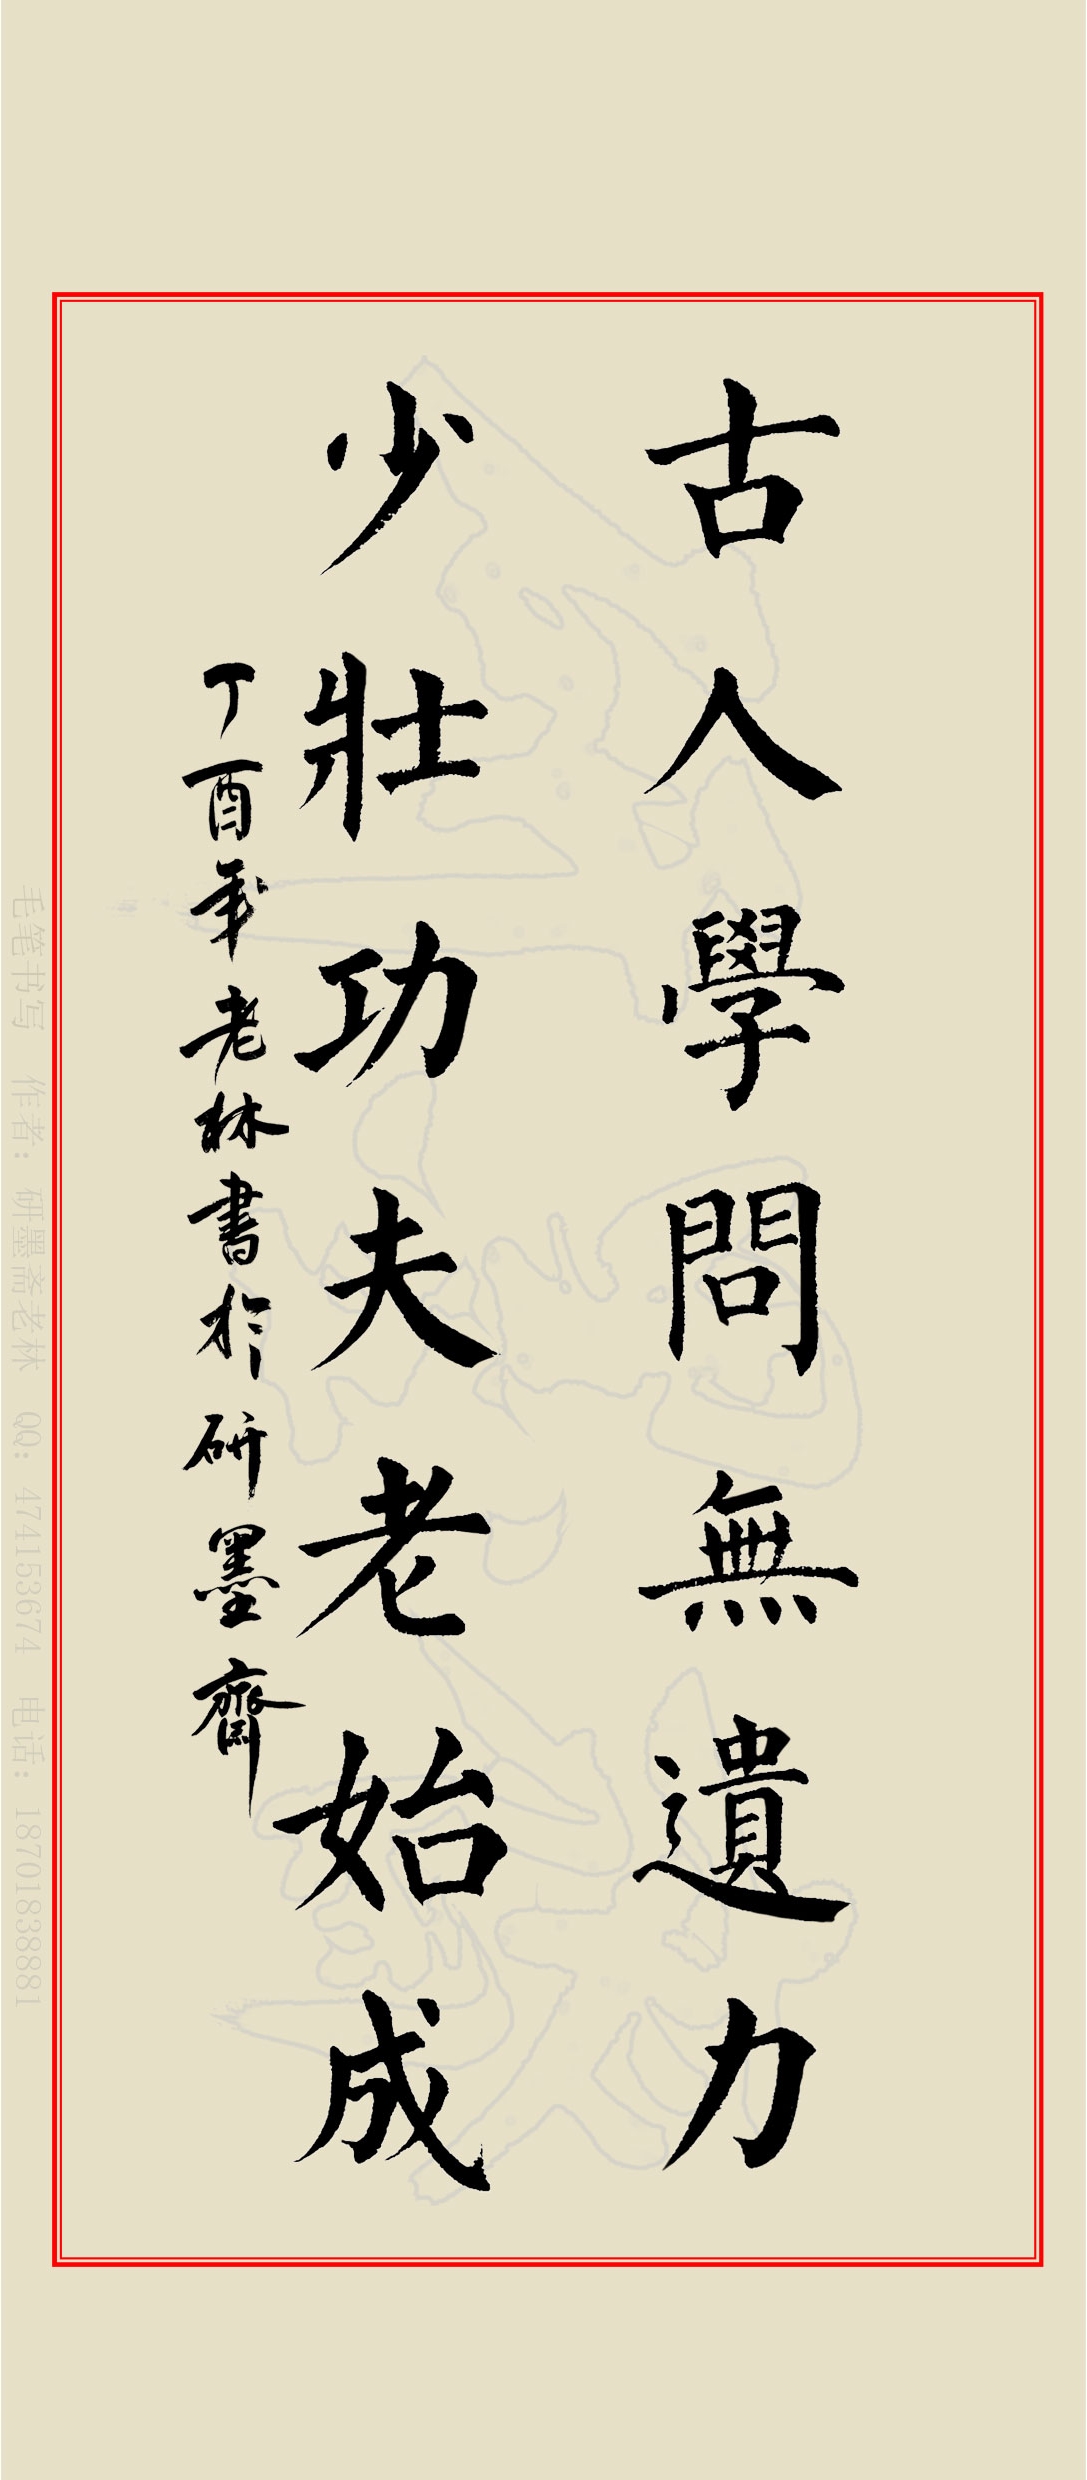 古人學問無遺力
少壯功夫老始成
丁酉年老林書於研墨齋
毛笔书写 作者：研墨斋老林 QQ：474153674 电话：18701838881